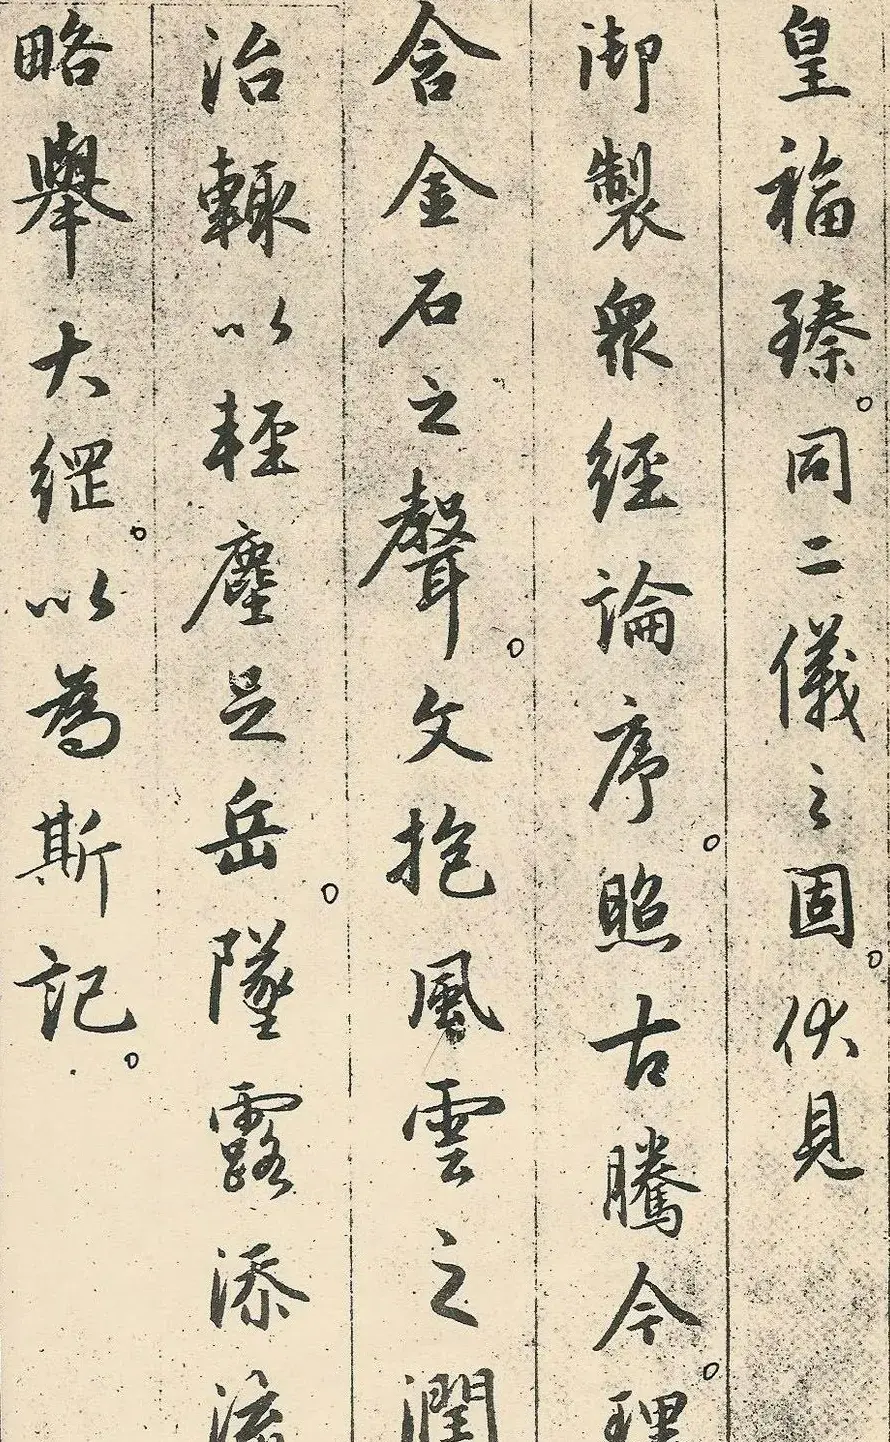 皇福臻。同二儀之固。伏見
御製衆經論序。照古騰今。理
含金石之聲。文抱風雲之潤
治輙以輕塵足岳。墜露添流
略舉大綱。以為斯記。